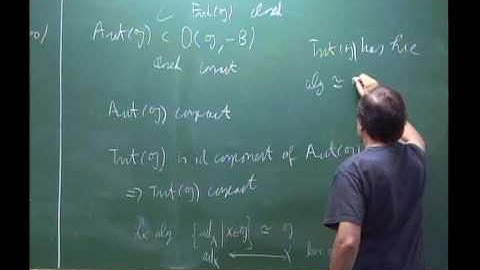 ⊂ End(g) closed
Aut(g) ⊂ O(g, -B)
closed compact
Aut(g) compact
Int(g) is id component of Aut(g)
⇒ Int(g) compact
Lie alg {ad_X | X ∈ g} ≅ g
ad_X ⟷ X
Int(g) has Lie
alg ≅